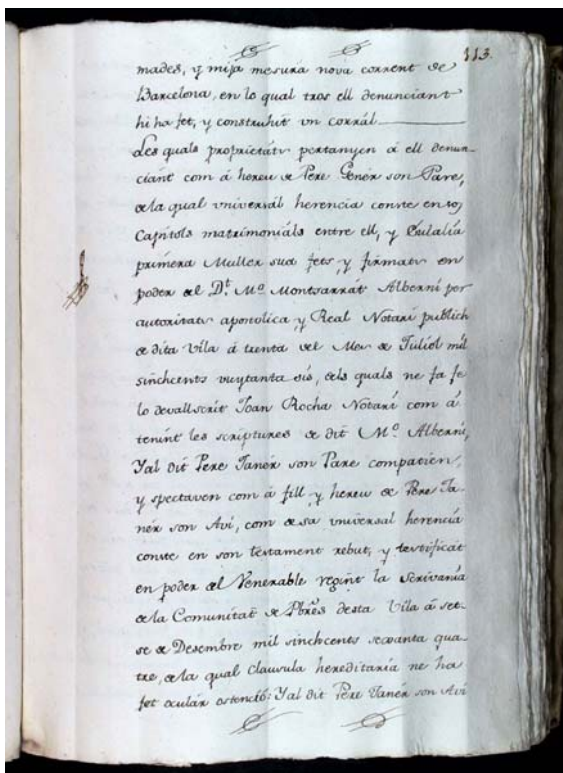 113.
mades, y mija mesura nova corrent de
Barcelona, en lo qual tros ell denunciant
hi ha fet, y construhit vn corrál
Les quals proprietats pertanyen á ell denun-
ciant com á hereu de Pere Genér son Pare,
de la qual vniversál herencia conste en los
Capitols matrimoniáls entre ell, y Eulalia
primera Muller sua fets, y firmats en
poder del Dt. Mo. Montsarrat Alberní per
autoritats apostolica, y Real Notarí publich
de dita Vila á trenta del Mes de Juliol mil
sinchcents vuytanta sis, dels quals ne fa fe
lo devallscrit Joan Rocha Notarí com á
tenint les scriptures de dit Mo. Alberní,
Yal dit Pere Janér son Pare compatien,
y spectaven com á fill, y hereu de Pere Ja-
nér son Avi, com de sa vniversal herencia
conste en son testament rebut, y testificát
en poder del Venerable regint la Scrivanía
de la Comunitat de Pbres desta Vila á set-
se de Desembre mil sinchcents sexanta qua-
tre, de la qual Clausula hereditaria ne ha
fet ocular ostenció: Yal dit Pere Janér son Avi